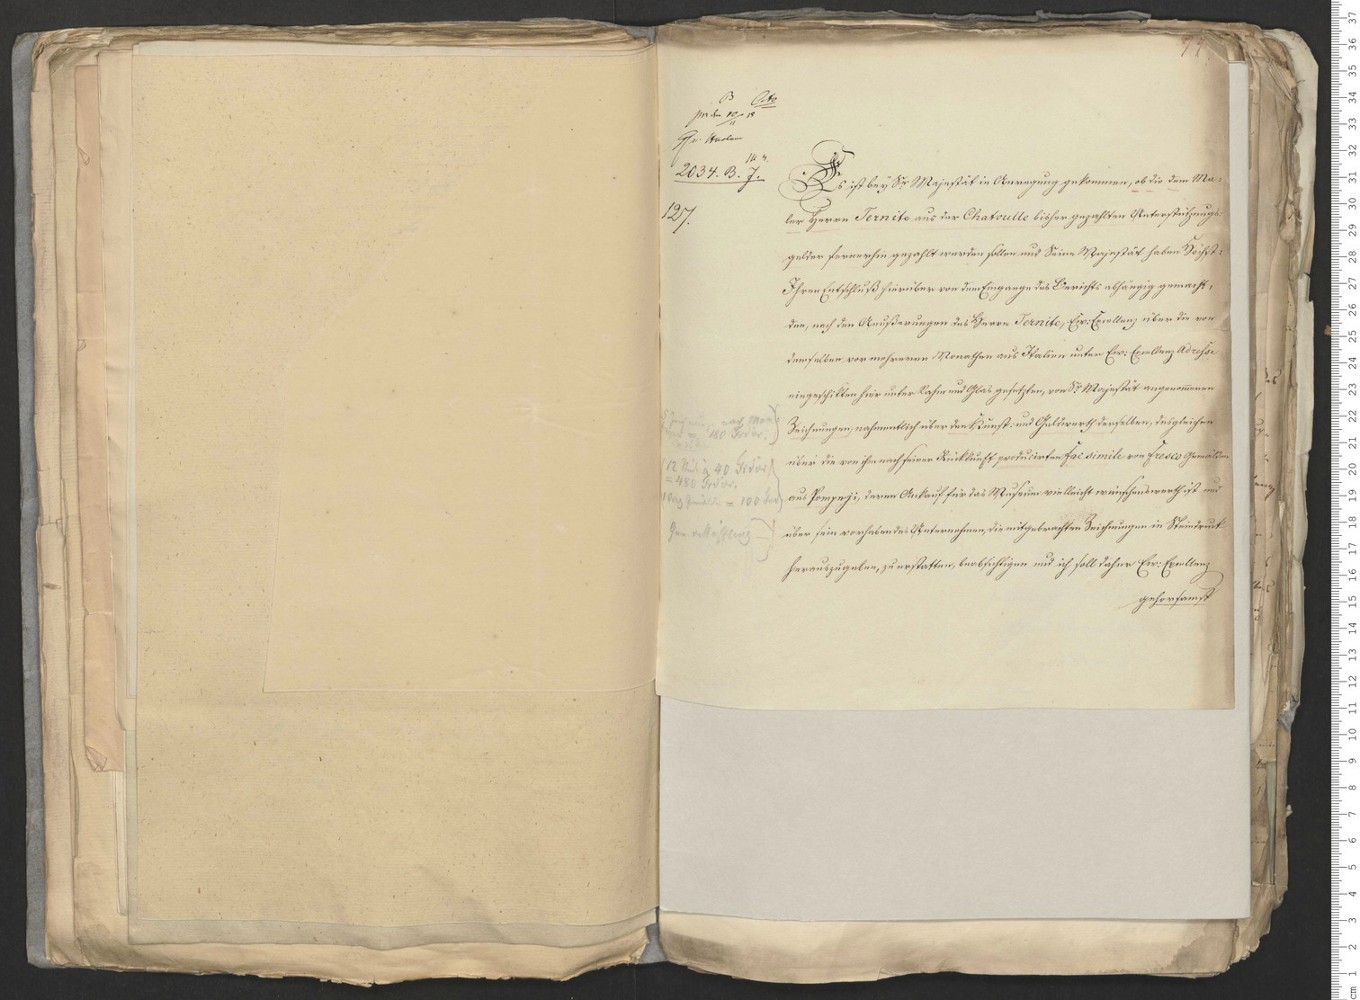 2034. B. J.
127.
Es ist bey Sr. Majestät in Anregung gekommen, ob die dem Ma-
ler Herrn Ternite aus der Chatoulle bisher gezahlten Unterstützungs-
gelder fernerhin gezahlt werden sollen und Seine Majestät haben Höchst-
Ihren Entschluß hierüber von dem Eingange des Berichts abhängig gemacht,
den, nach den Aeußerungen des Herrn Ternite, Ew: Excellenz über die von
demselben vor mehreren Monathen aus Italien unter Ew: Excellenz Adresse
eingeschikten hier unter Rahm und Glas gesetzten, von Sr. Majestät angenommenen
Zeichnungen, nahmentlich über den Kunst- und Geldwerth derselben, desgleichen
über die von ihm nach seiner Rückkunft producirten Facsimile von Fresco Gemälden
aus Pompeji, deren Ankauf für das Museum vielleicht wünschenswerth ist und
über sein vorhabendes Unternehmen, die mitgebrachten Zeichnungen in Steindruck
herauszugeben, zu erstatten, beabsichtigen und ich soll daher Ew: Excellenz
gehorsamst
180
12 40
= 480
= 100